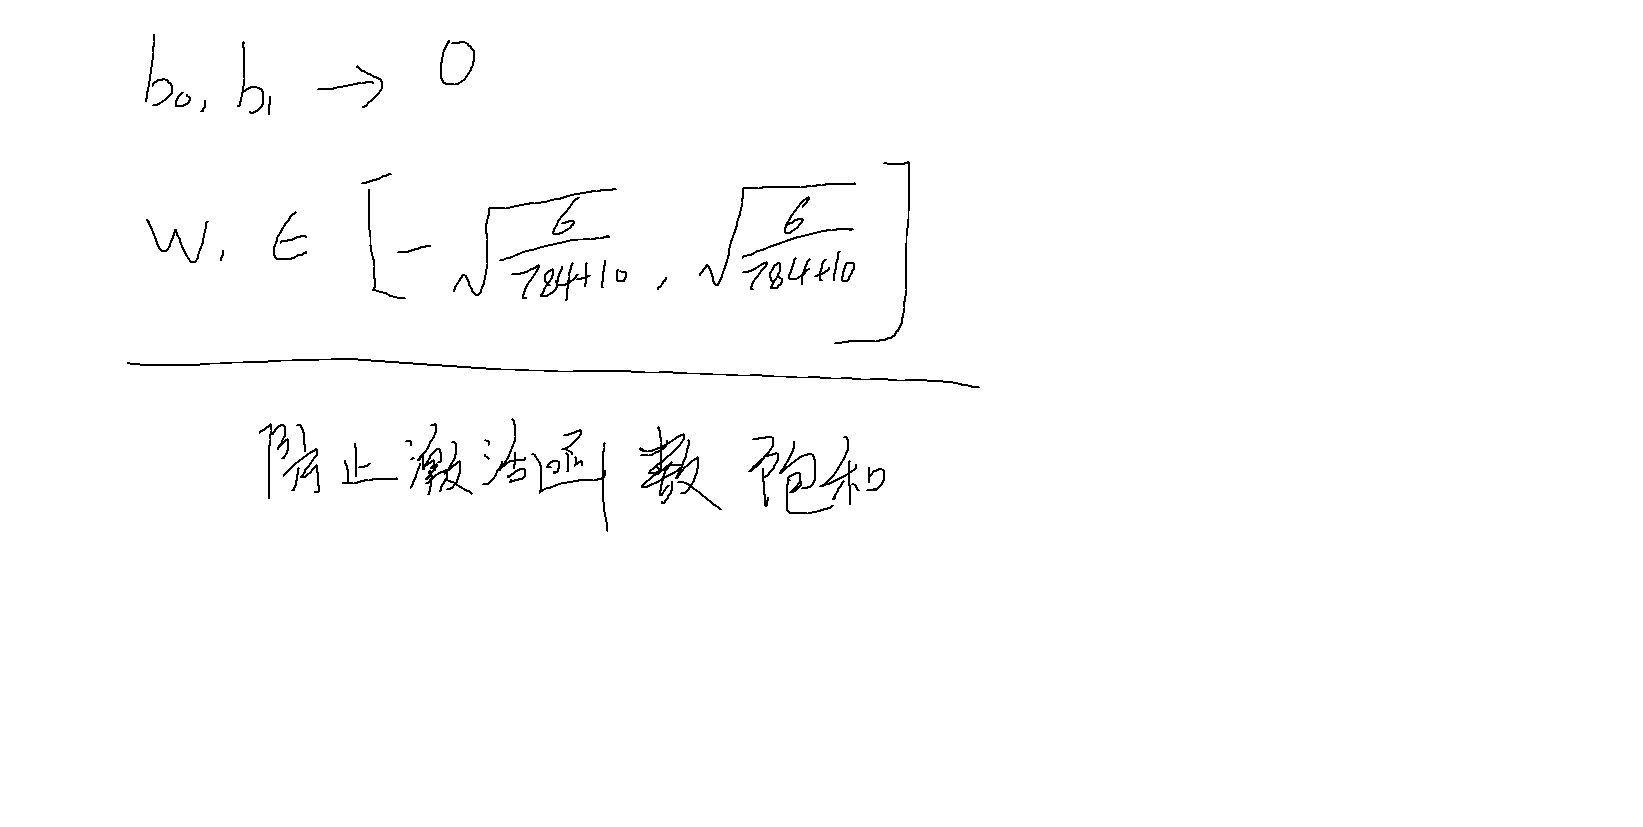 b₀, b₁ → 0
W₁ ∈ [-√(6/(784+10)), √(6/(784+10))]
防止激活函数饱和